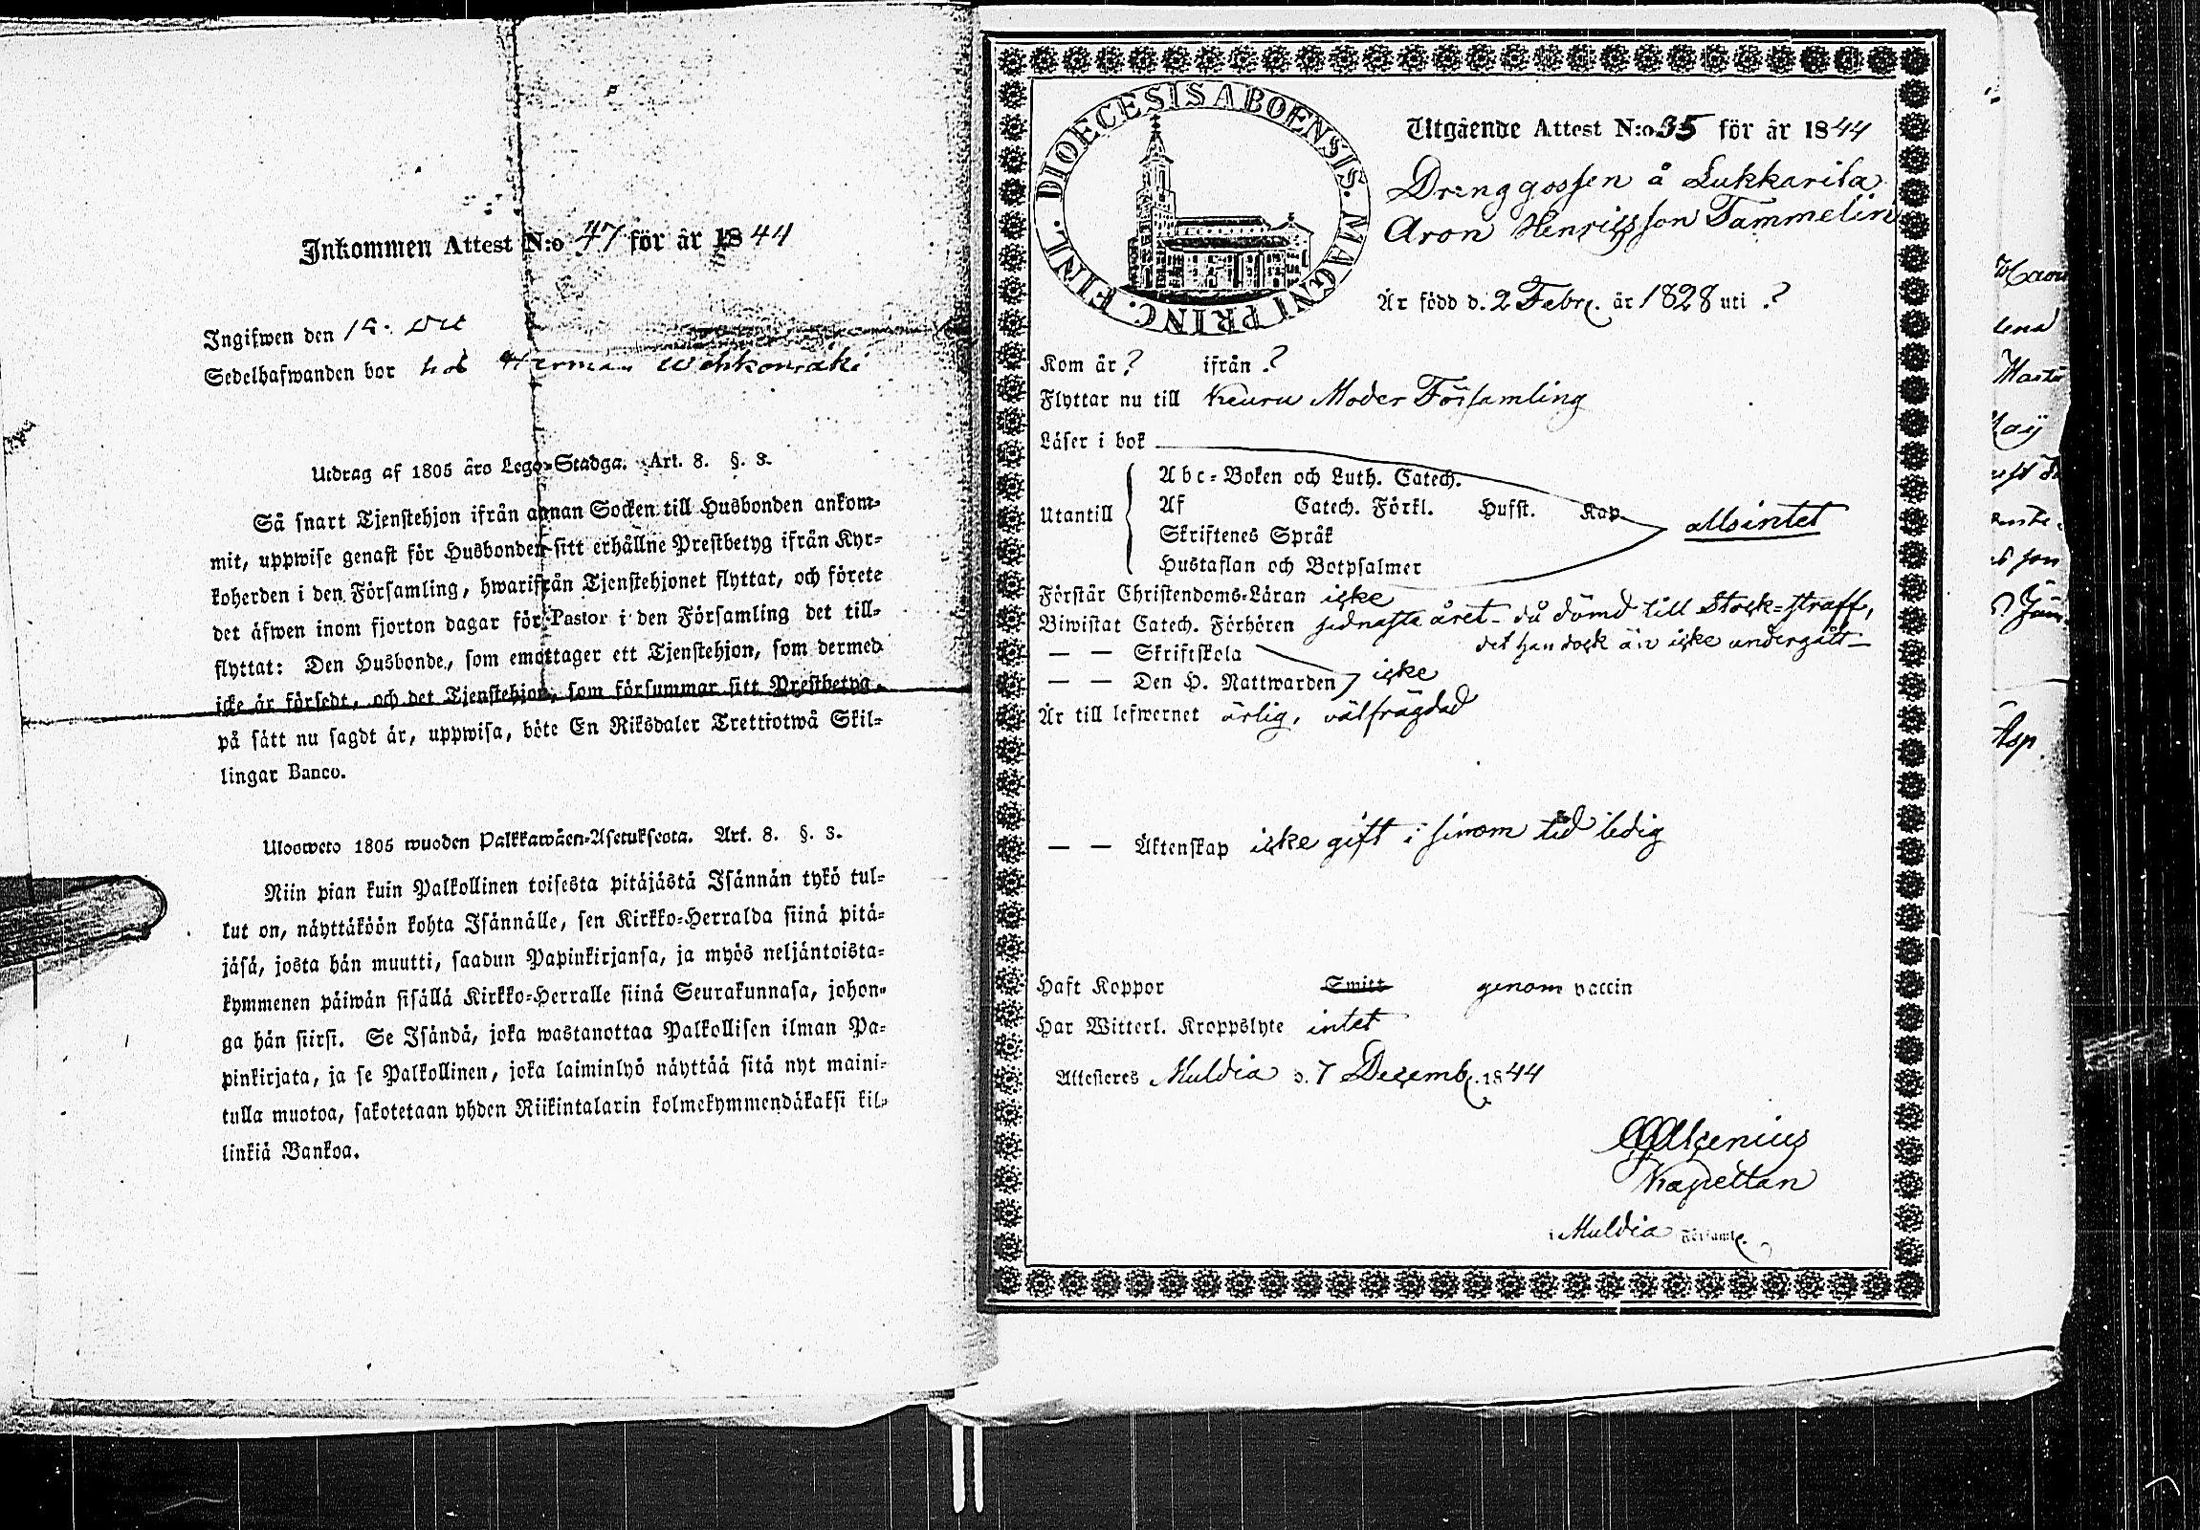 Inkommen Attest N:o 47 för år 1844
Ingifwen den
Sedelhafwanden bor hos Herman
Utdrag af 1805 års Lego-Stadga. Art. 8. §. 3.
Så snart Tjenstehjon ifrån annan Socken till Husbonden ankom-
mit, uppwise genast för Husbonden sitt erhållne Prestbetyg ifrån Kyr-
koherden i den Församling, hwarifrån Tjenstehjonet flyttat, och förete
det äfwen inom fjorton dagar för Pastor i den Församling det till-
flyttat: Den Husbonde, som emottager ett Tjenstehjon, som dermed
icke är försedt, och det Tjenstehjon, som försummar sitt Prestbetyg,
på sätt nu sagdt är, uppwisa, böte En Riksdaler Trettiotwå Skil-
lingar Banco.
Ulosweto 1805 wuoden Palkkawäen-Asetuksesta. Art. 8. §. 3.
Niin pian kuin Palkollinen toisesta pitäjästä Isännän tykö tul-
lut on, näyttäköön kohta Isännälle, sen Kirkko-Herralda siinä pitä-
jäsä, josta hän muutti, saadun Papinkirjansa, ja myös neljäntoista-
kymmenen päiwän sisällä Kirkko-Herralle siinä Seurakunnasa, johon-
ga hän siirsi. Se Isändä, joka wastanottaa Palkollisen ilman Pa-
pinkirjata, ja se Palkollinen, joka laiminlyö näyttää sitä nyt maini-
tulla muotoa, sakotetaan yhden Riikintalarin kolmekymmendäkaksi kil-
linkiä Bankoa.
DIOECESIS ABOENSIS. MAGNI PRINC. FINL.
Utgående Attest N:o 35 för år 1844
Drenggossen å Lukkarila
Aron Henricsson Tammelin
Är född d. 2 Febr. år 1828 uti ?
Kom år ? ifrån ?
Flyttar nu till Keuru Moder Församling
Läser i bok
Utantill
Abc-Boken och Luth. Catech.
Af Catech. Förkl. Husst. Kap.
allsintet
Skriftenes Språk
Hustaflan och Botpsalmer
Förstår Christendoms-Läran icke
Biwistat Catech. Förhören sednaste året - då dömd till Stock-straff,
det han dock än icke undergått -
— — Skriftskola
— — Den H. Nattwarden icke
Är till lefwernet ärlig, välfrägdad
— — Äktenskap icke gift i sinom tid ledig
Haft Koppor Smitt genom vaccin
Har Witterl. Kroppslyte intet
Attesteres Muldia d. 7 Decemb. 1844
Kapellan
i Muldia Församl.
Asp